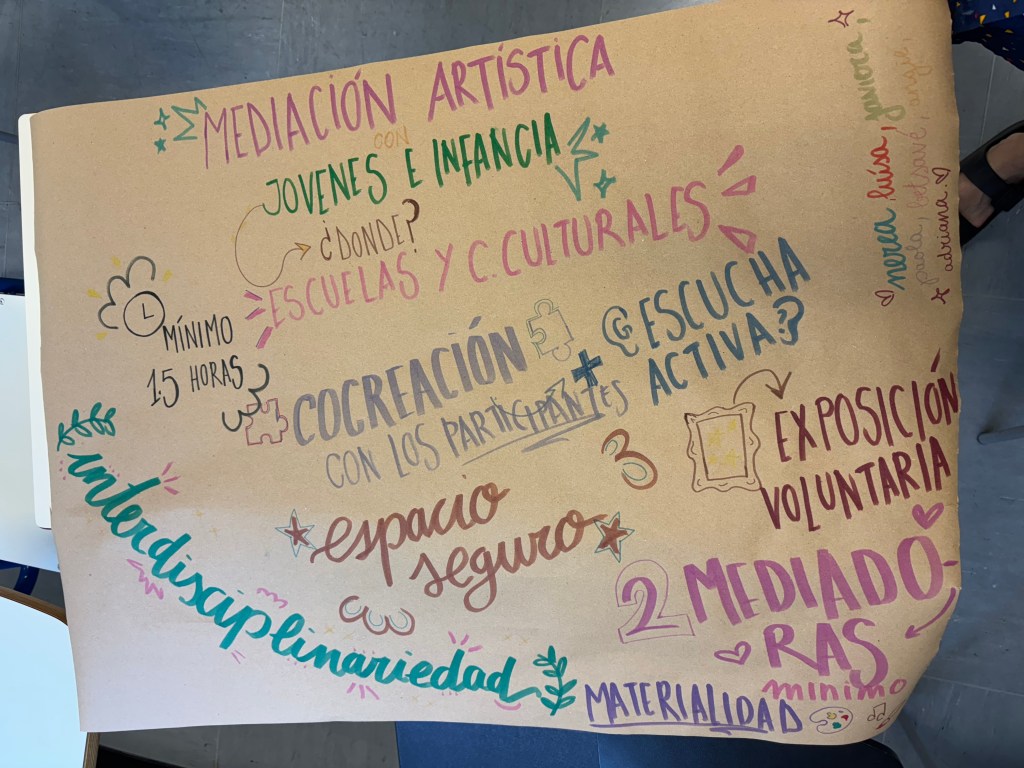 MEDIACIÓN ARTÍSTICA
CON
JOVENES E INFANCIA
¿DONDE?
ESCUELAS Y C. CULTURALES
MÍNIMO
1.5 HORAS
COCREACIÓN
CON LOS PARTICIPANTES
+
ESCUCHA
ACTIVA
EXPOSICIÓN
VOLUNTARIA
espacio
seguro
interdisciplinariedad
2 MEDIADO-
RAS
mínimo
MATERIALIDAD
nerea, luisa, javiora,
paola, betsavé, angie,
adriana.